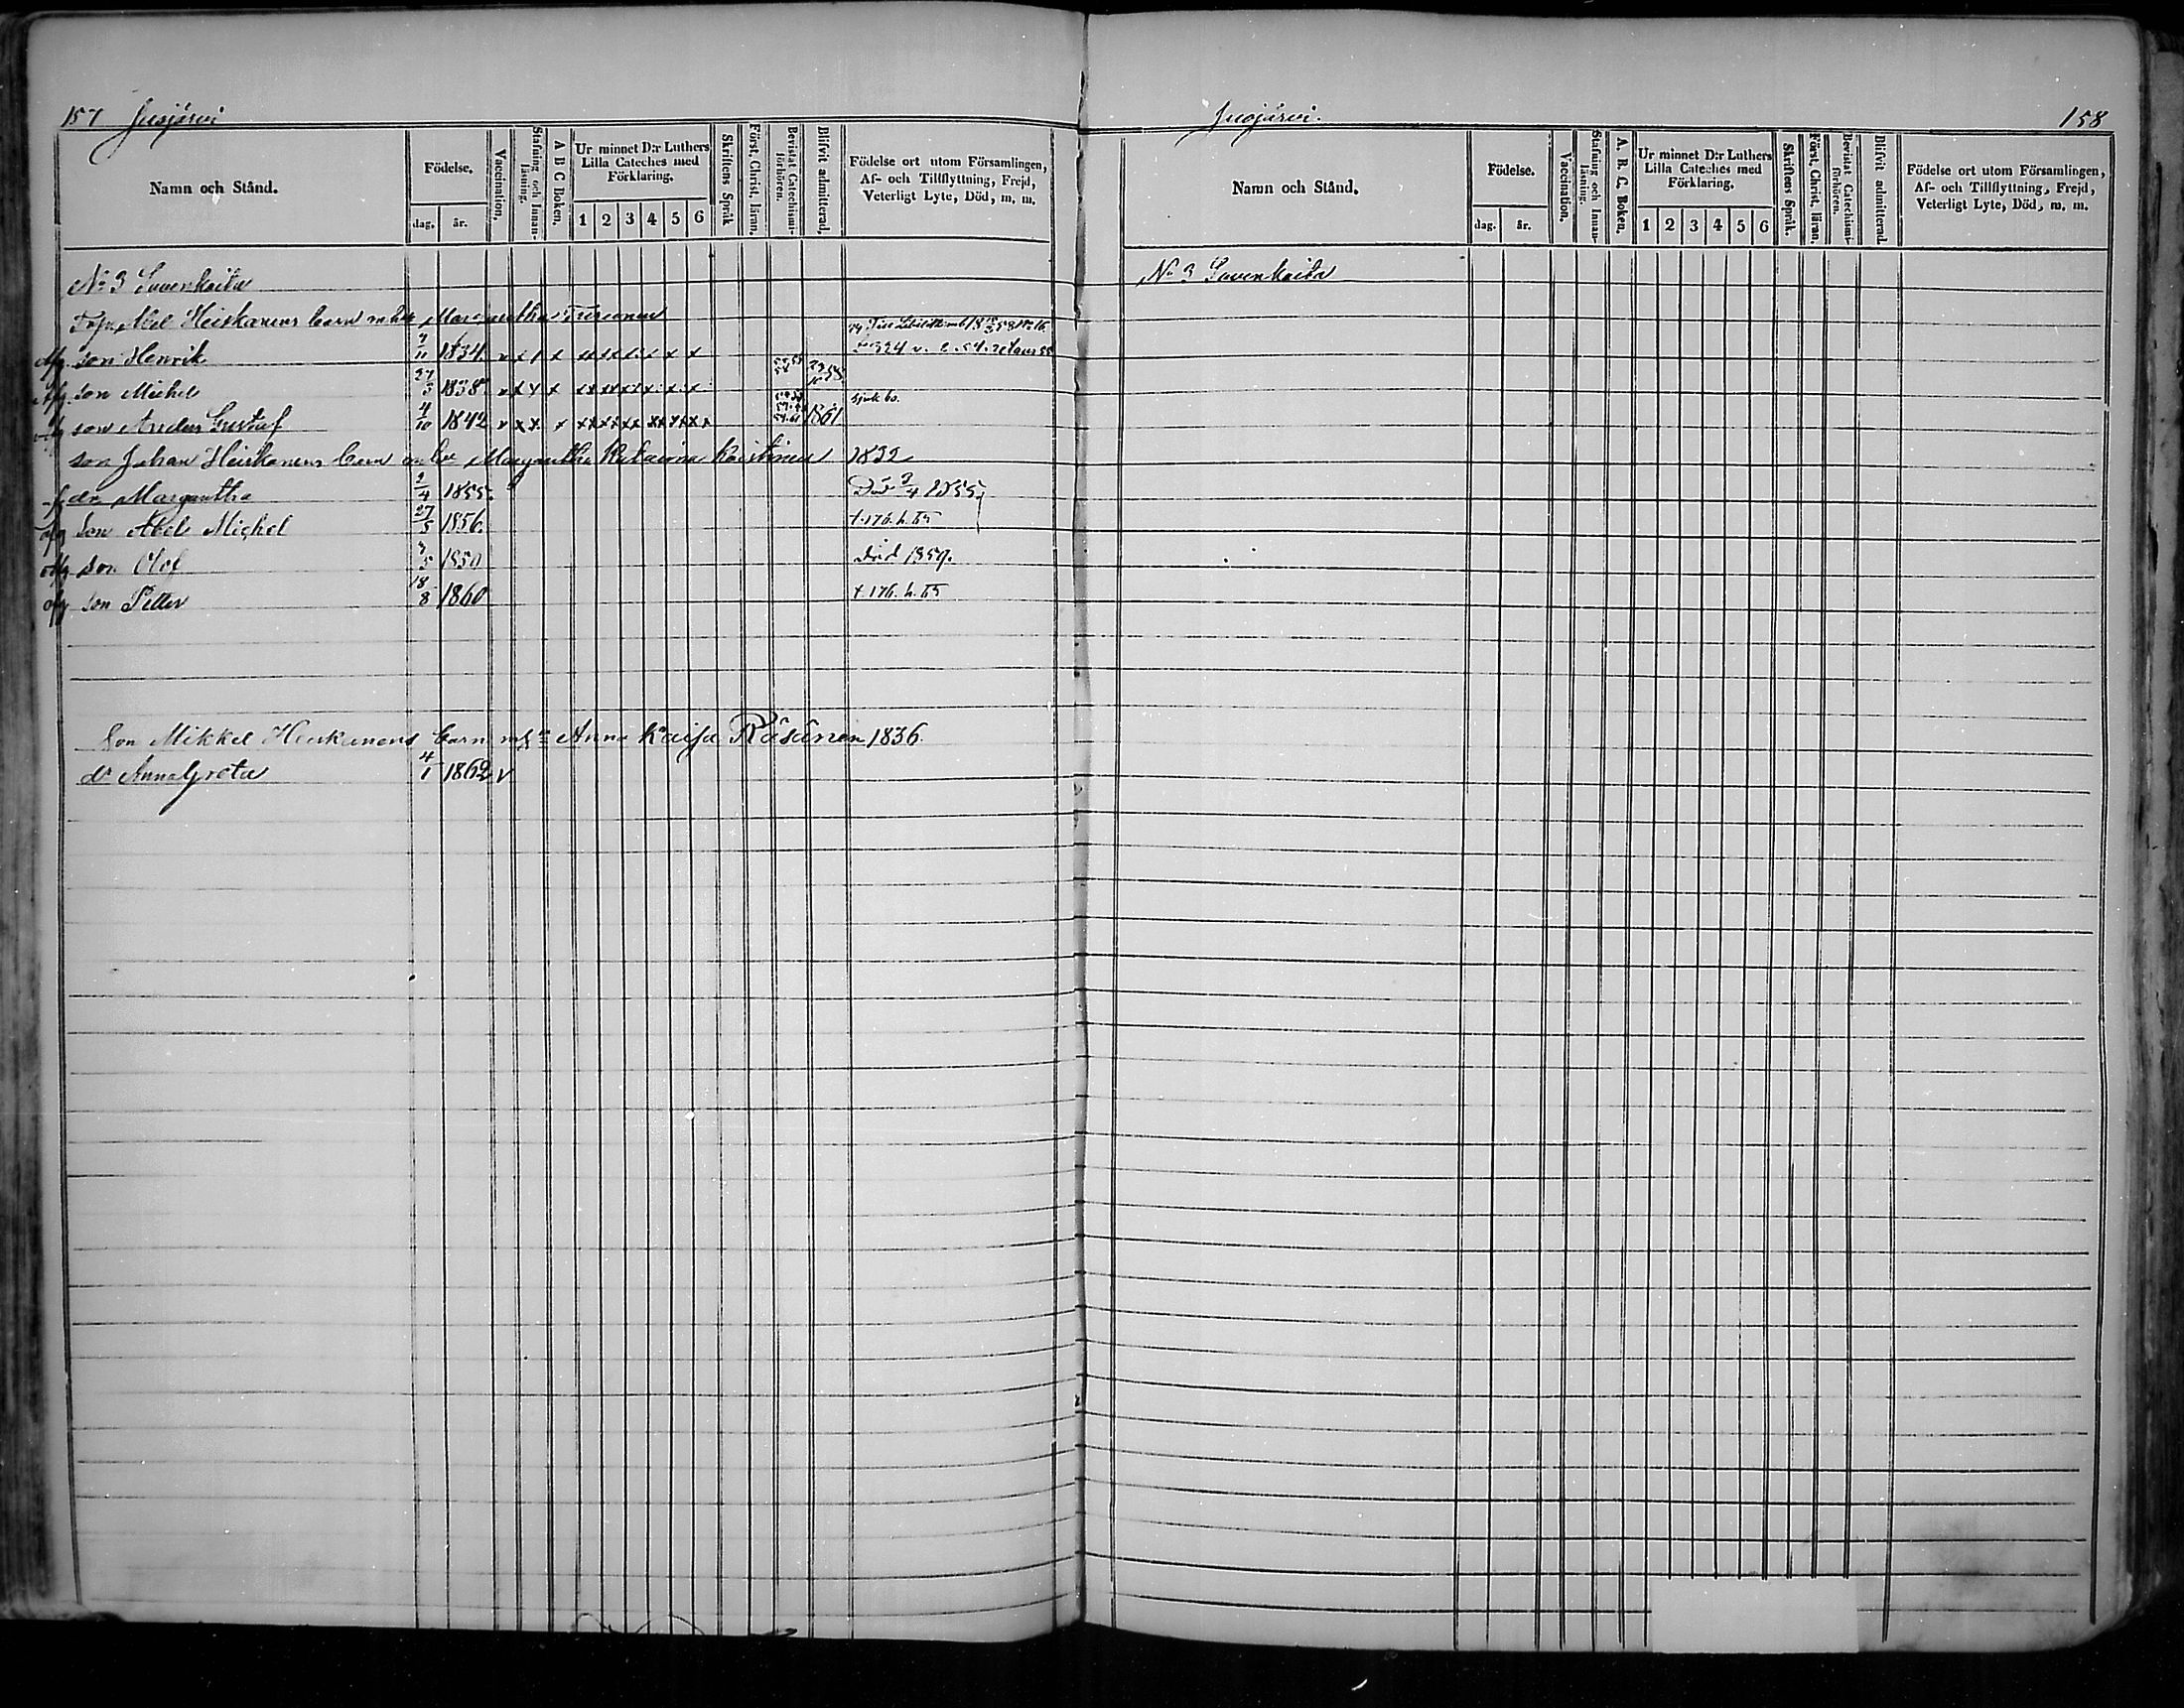 157 Juojärvi
Namn och Stånd.
Födelse.
dag. år.
Vaccination.
Stafning och Innan-läsning.
A B C Boken.
Ur minnet D:r Luthers
Lilla Cateches med
Förklaring.
1 2 3 4 5 6
Skriftens Språk
Först. Christ. läran.
Bevistat Catechismi-förhören.
Blifvit admitterad.
Födelse ort utom Församlingen,
Af- och Tillflyttning, Frejd,
Veterligt Lyte, Död, m. m.
No 3 Suvenkaita
Abel Heiskanens barn m hu Margaretha Turunen
son Henrik 1834
son Michel 27/5 1838
son Anders Gustaf 4/10 1842 1861
son Johan Heiskanens barn m hu Margretha Katarina Koistinen 1832
dr Margaretha 2/4 1855 Död 3/4 1855
son Abel Michel 27/5 1856. t. 176. h. 65
son Olof 1850 död 1859.
son Petter 18/8 1860 t. 176. h. 65
Son Mikkel Heiskanens barn m hu Anna Kaisa Räsänen 1836
dr Anna Greta 4/1 1862 v
Juojärvi. 158
Namn och Stånd.
Födelse.
dag. år.
Vaccination.
Stafning och Innan-läsning.
A. B. C. Boken.
Ur minnet D:r Luthers
Lilla Cateches med
Förklaring.
1 2 3 4 5 6
Skriftens Språk.
Först. Christ. läran.
Bevistat Catechismi-förhören.
Blifvit admitterad.
Födelse ort utom Församlingen,
Af- och Tillflyttning, Frejd,
Veterligt Lyte, Död, m. m.
No 3 Suvenkaita